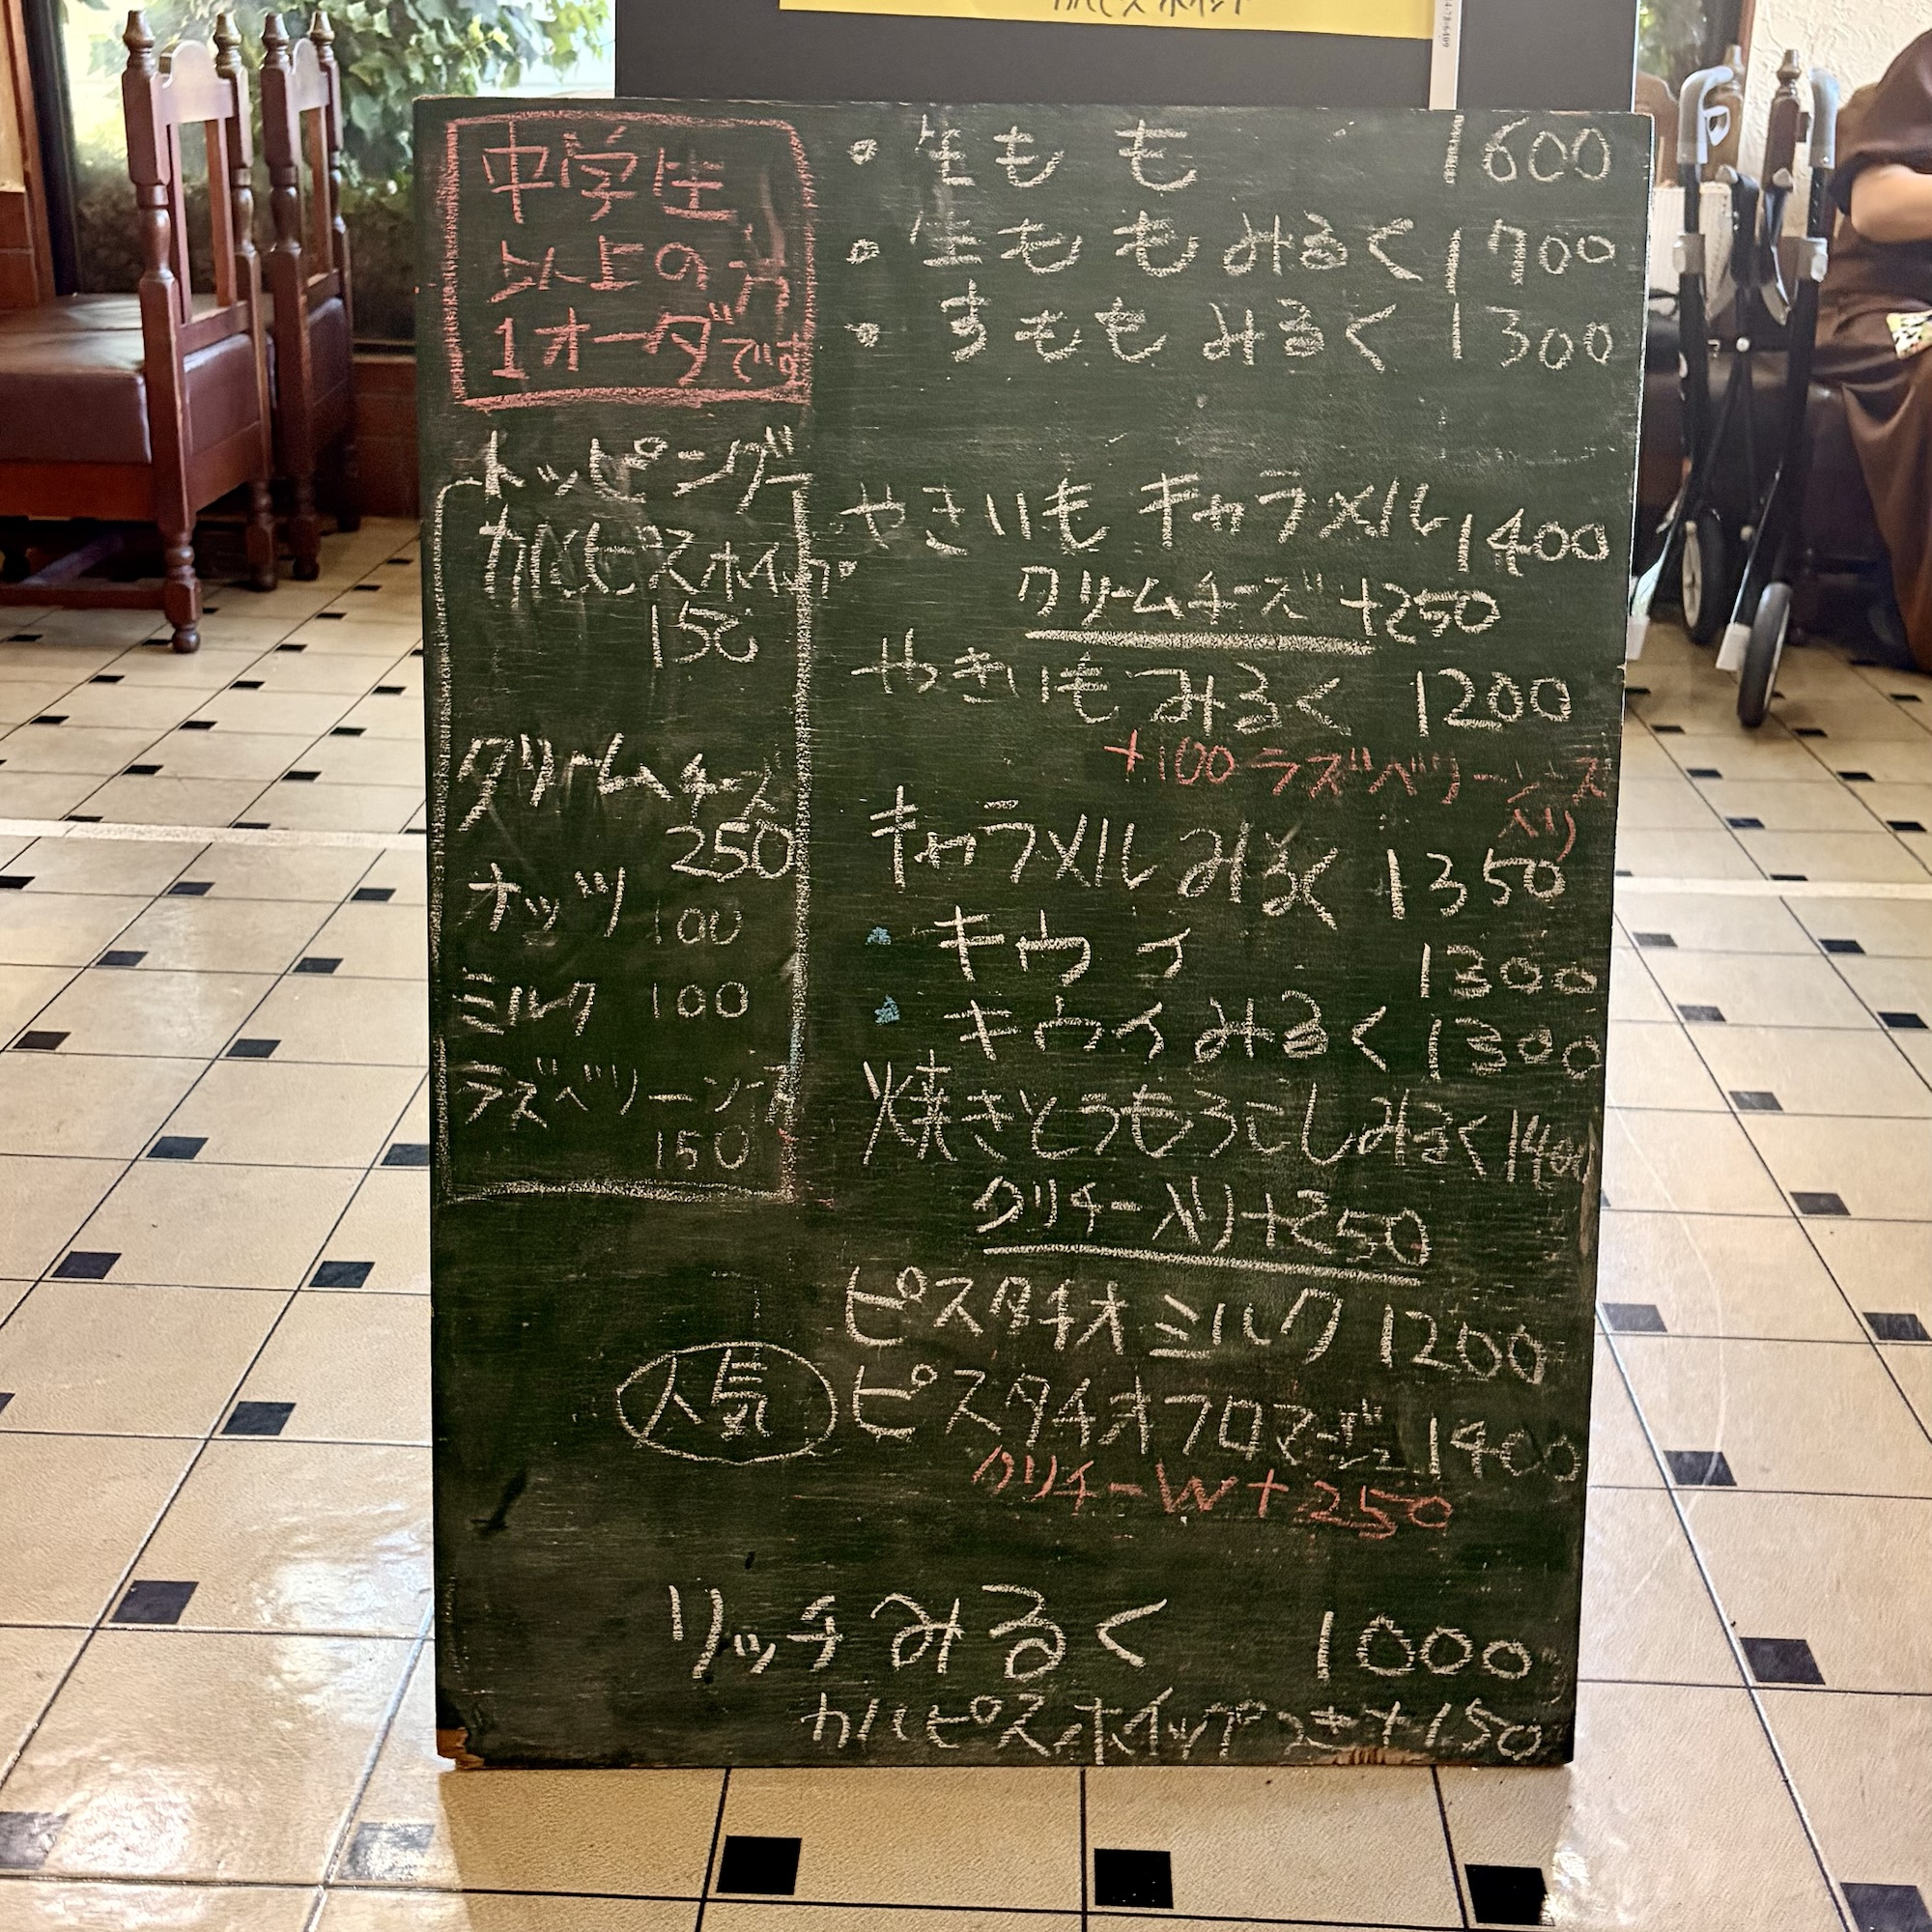 カルピスホイップ
中学生
以上の方
1オーダーです
・生もも 1600
・生ももみるく 1700
・すももみるく 1300
トッピング
カルピスホイップ
150
クリームチーズ
250
ナッツ 100
ミルク 100
ラズベリーソース
150
やきいもキャラメル 1400
クリームチーズ+250
やきいもみるく 1200
+100ラズベリーソース
入り
キャラメルみるく 1350
キウイ 1300
キウイみるく 1300
焼きとうもろこしみるく 1400
クリチー入り+250
ピスタチオミルク 1200
人気 ピスタチオフロマージュ 1400
クリチーW+250
リッチみるく 1000
カルピスホイップ +150